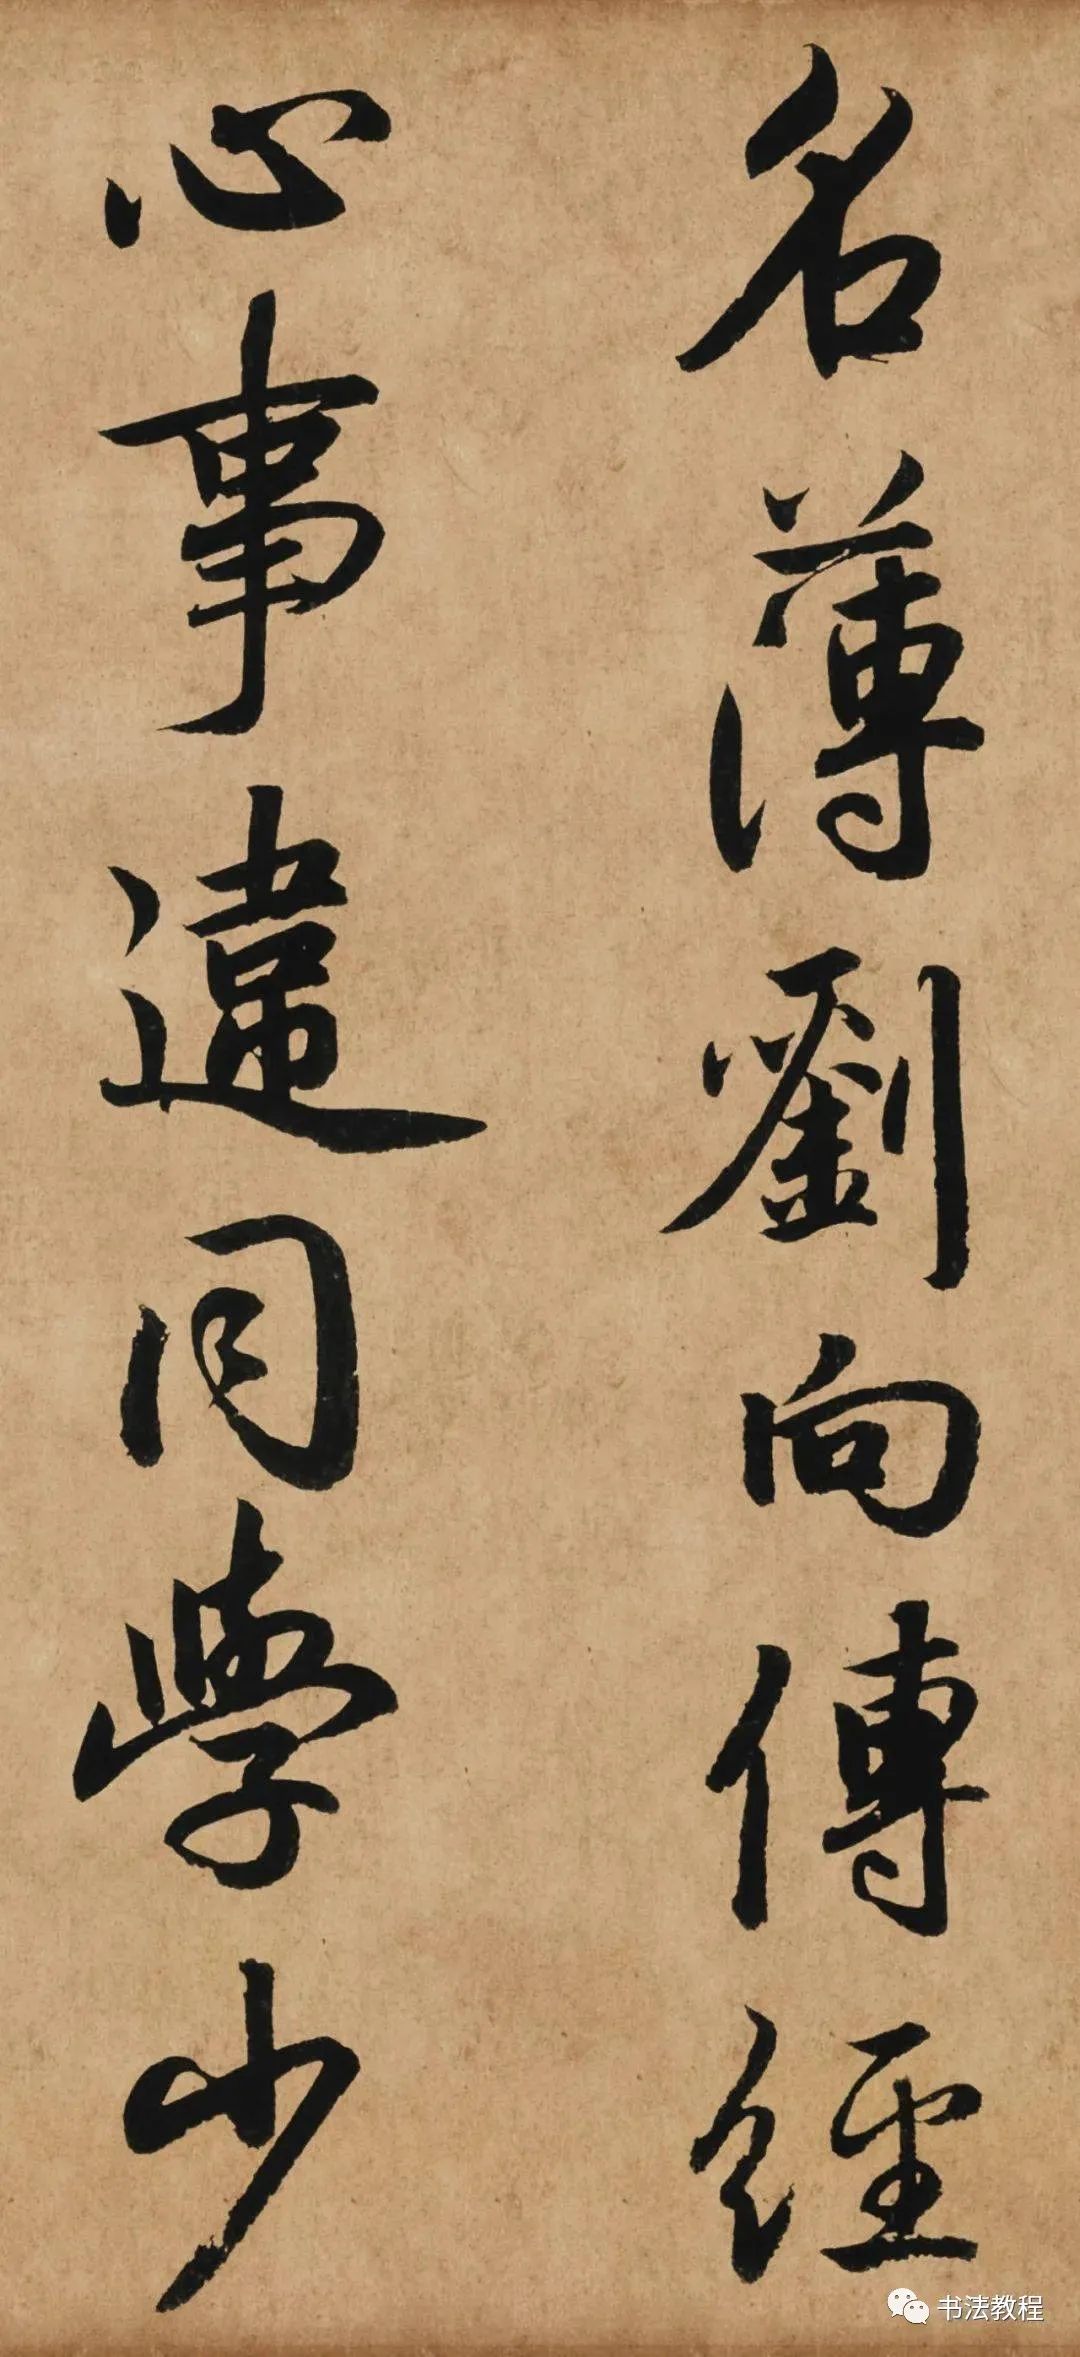 名薄劉向傳經
心事違同學少
书法教程